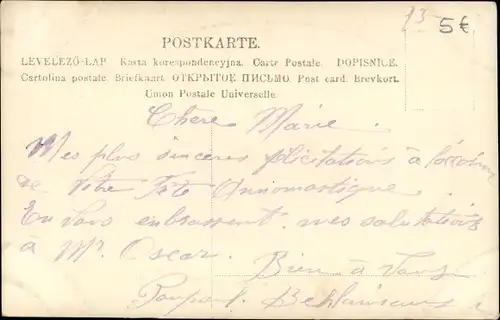 13-
5€
POSTKARTE.
LEVELEZŐ-LAP. Karta korespondencyjna. Carte Postale. DOPISNICE.
Cartolina postale. Briefkaart. ОТКРЫТОЕ ПИСЬМО. Post card. Brevkort.
Union Postale Universelle.
Chère Marie.
Mes plus sincères félicitations à l'occasion
de Votre Fête Onnomastique.
En Vous enbrassent. mes salutations
à Mr. Oscar.
Bien à Vous